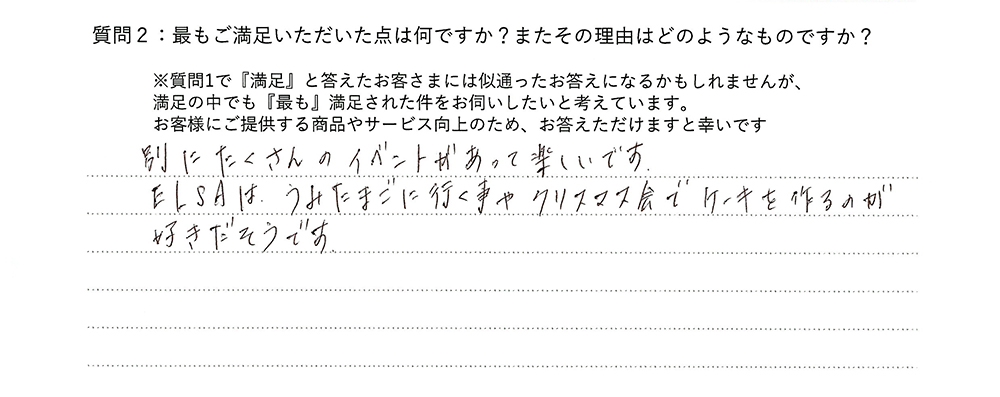 質問２：最もご満足いただいた点は何ですか？またその理由はどのようなものですか？
※質問1で『満足』と答えたお客さまには似通ったお答えになるかもしれませんが、
満足の中でも『最も』満足された件をお伺いしたいと考えています。
お客様にご提供する商品やサービス向上のため、お答えただけますと幸いです
別にたくさんのイベントがあって楽しいです.
ELSAは、うみたまごに行く事やクリスマス会でケーキを作るのが
好きだそうです.